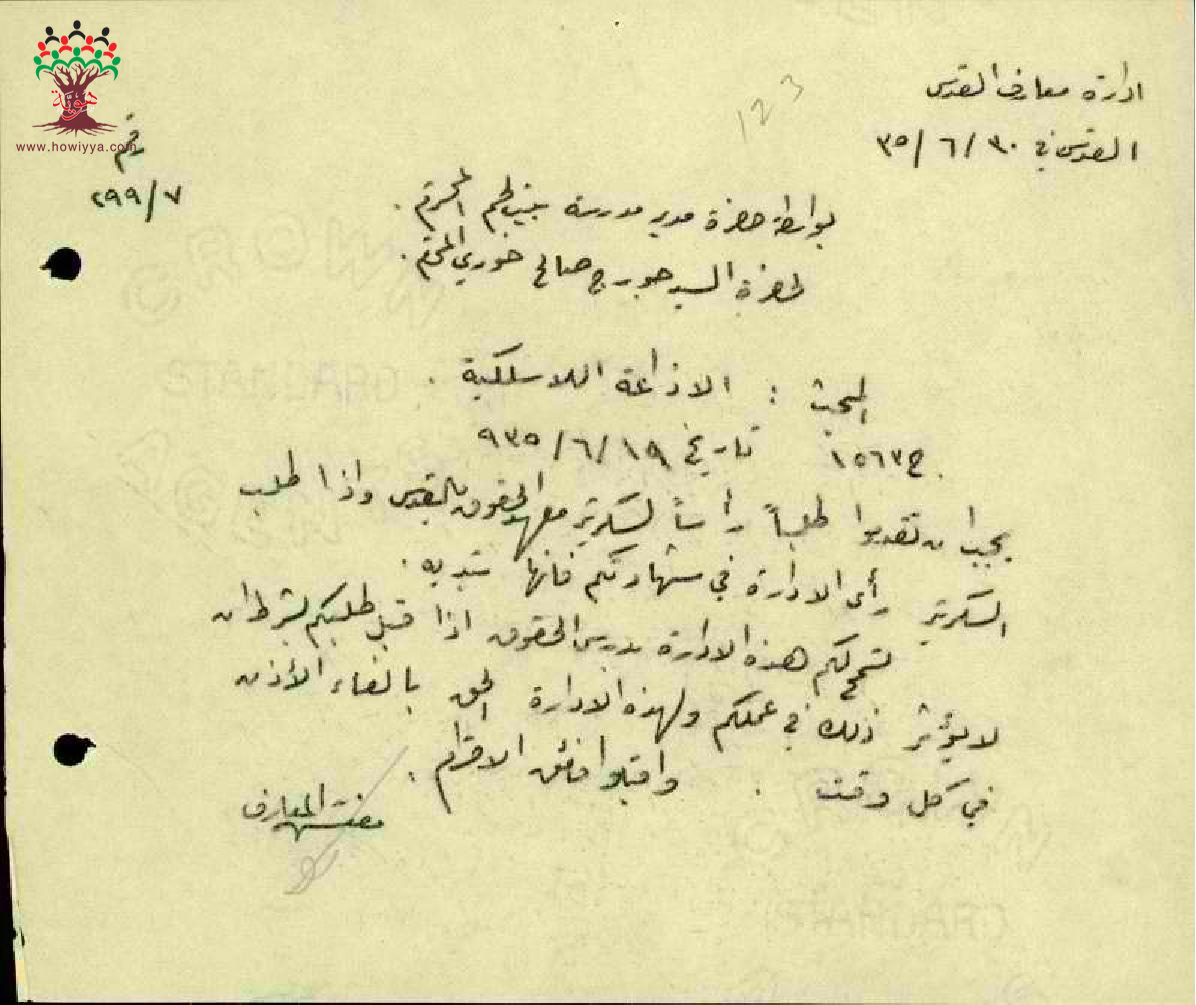 هوية
www.howiyya.com
ادارة معارف القدس
القدس في ٣٠/٦/٣٥
رقم
٢٩٩/٧
123
بواسطة حضرة مدير مدرسة بيت لحم المحترم .
لحضرة السيد جورج صالح خوري المحترم .
المبحث : الاذاعة اللاسلكية .
ج ١٥٦٣ تاريخ ١٩/٦/٩٣٥
يجب ان تقدموا طلباً رأساً لسكرتير معهد الحقوق بالقدس واذا طلب
السكرتير رأي الادارة في شهادتكم فانها تبديه .
تسمح لكم هذه الادارة بدرس الحقوق اذا قبل طلبكم بشرط ان
لا يؤثر ذلك في عملكم ولهذه الادارة الحق بالغاء الأذن
في كل وقت . واقبلوا فائق الاحترام .
مفتش المعارف